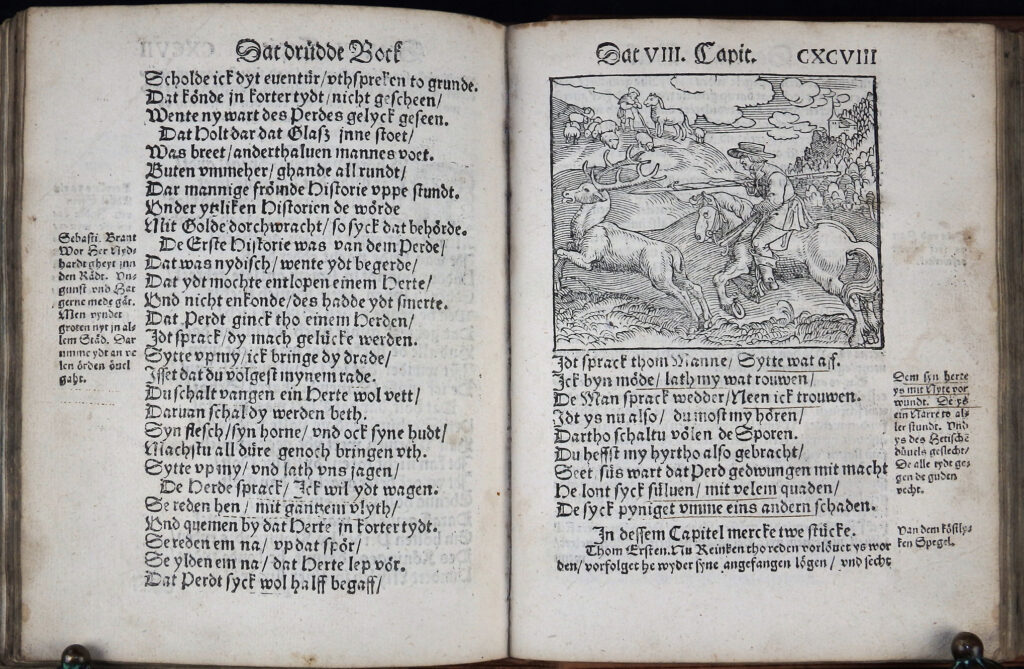 Dat drüdde Bock
Scholde ick dyt eventür/vthspreken to grunde.
Dat könde jn korter tydt/nicht gescheen/
Wente ny wart des Perdes gelyck geseen.
Dat Holt dar dat Glasz jnne stoet/
Was breet/anderthaluen mannes voet.
Buten vmmeher/ghande all rundt/
Dar mannige frönnde Historie vppe stundt.
Vnder ytzliken Historien de wörde
Mit Golde dorchwracht/so syck dat behörde.
De Erste Historie was van dem Perde/
Dat was nydisch/wente ydt begerde/
Dat ydt mochte entlopen einem Herte/
Vnd nicht enkonde/des hadde ydt smerte.
Dat Perdt ginck tho einem Herden/
Jdt sprack/dy mach gelücke werden.
Sytte vp my/ick bringe dy drade/
Jsset dat du volgest mynem rade.
Du schalt vangen ein Herte wol vett/
Daruan schal dy werden beth.
Syn flesch/syn horne/vnd ock syne hudt/
Machstu all düre genoch bringen vth.
Sytte vp my/vnd lath vns jagen/
De Herde sprack/Jck wil ydt wagen.
Se reden hen/mit gantzem vlyth/
Vnd quemen by dat Herte jn korter tydt.
Se reden em na/vp dat spör/
Se ylden em na/dat Herte lep vör.
Dat Perdt syck wol halff begaff/
Sebasti. Brant
Wor Her Nyd-
hardt gheyt jnn
den Rädt. Vn-
gunst vnd Hat
gerne mede gät.
Men vyndet
groten nyt jn al-
lem Städ. Dar
vmme ydt an ve
len örden övel
gaht.
Dat VIII. Capit. CXCVIII
Jdt sprack thom Manne/Sytte wat aff.
Jck byn möde/lath my wat rouwen/
De Man sprack wedder/Neen ick trouwen.
Jdt ys nu also/du most my hören/
Dartho schaltu völen de Sporen.
Du heffst my hyrtho also gebracht/
Seet süs wart dat Perd gedwungen mit macht
He lont syck sülven/mit velem quaden/
De syck pyniget vmme eins andern schaden.
In dessem Capitel mercke twe stücke.
Thom Ersten. Nu Reinken tho reden vorlövet ys wor
den/vorfolget he wyder syne angefangen lögen/vnd secht
Dem syn herte
ys mit Nyte vor
wundt. De ys
ein Narre to al-
ler stundt. Vnd
ys des Hetischē
düuels geslecht/
De alle tydt ge-
gen de guden
vecht.
Van dem köstly-
ken Spegel.